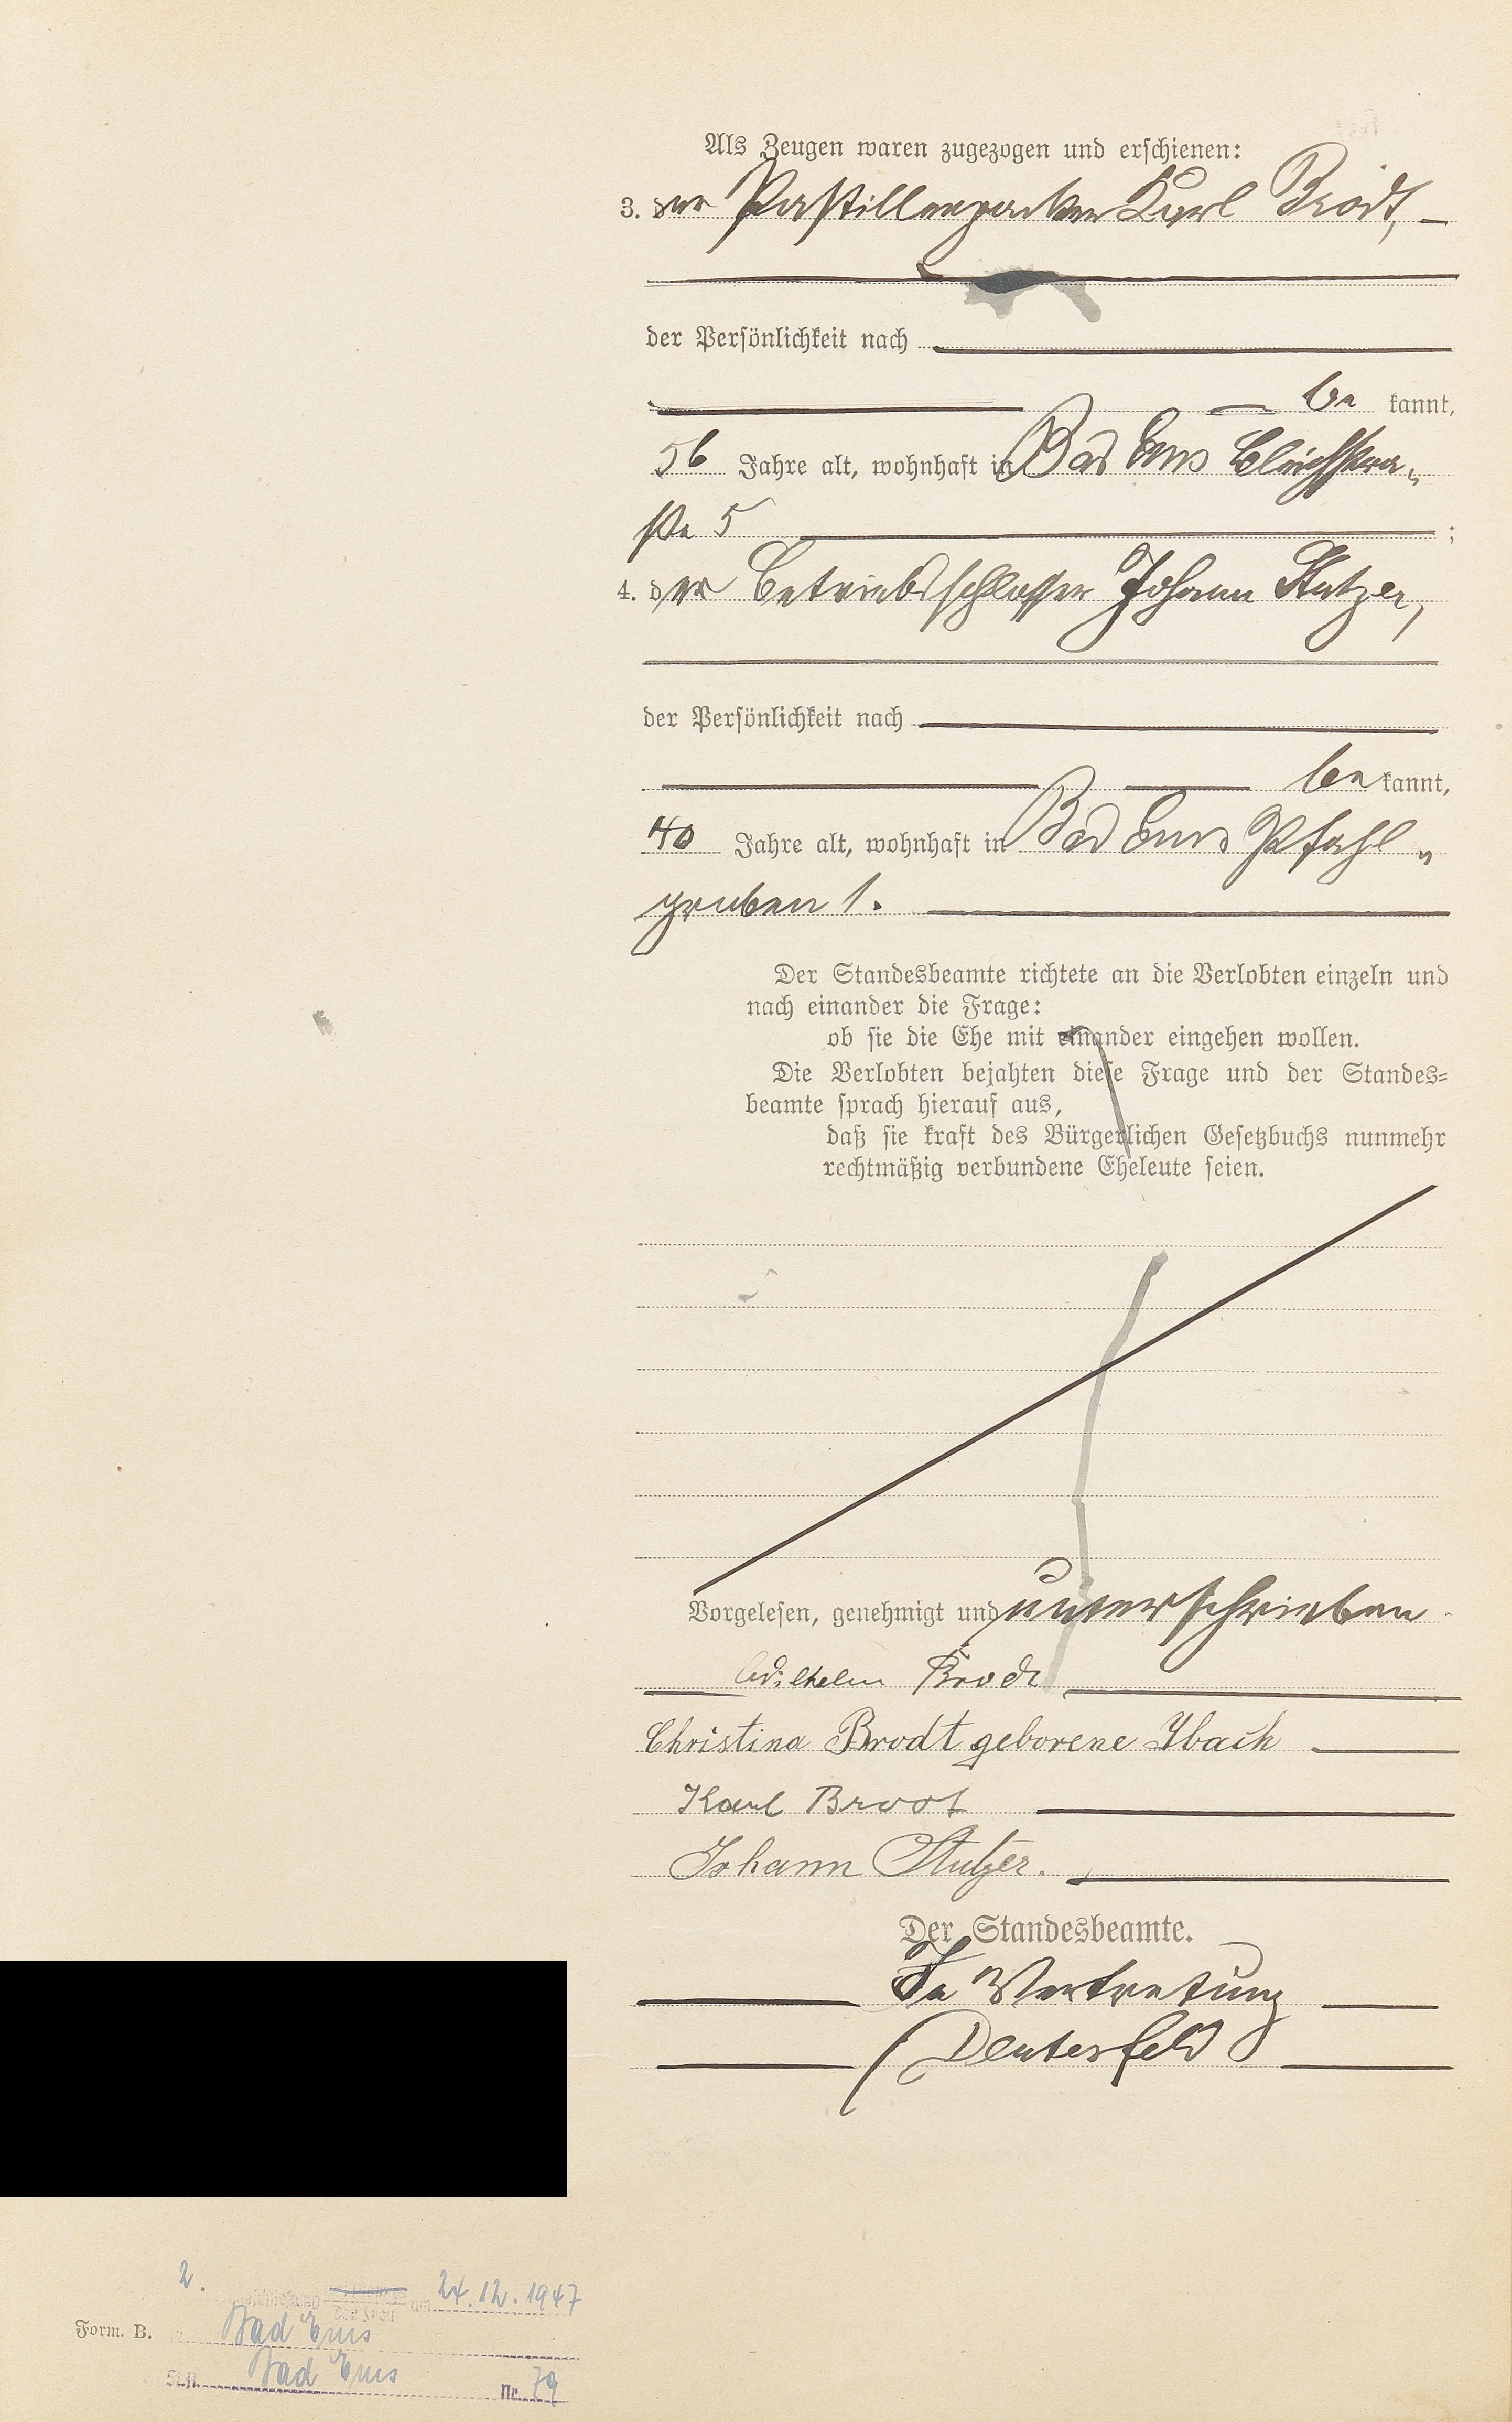 Als Zeugen waren zugezogen und erschienen:
3. der Pastillenpacker Karl Brodt, —
der Persönlichkeit nach
be kannt,
56 Jahre alt, wohnhaft in Bad Ems Bleichstra„
ße 5 ;
4. der Betriebsschlosser Johann Stutzer,
der Persönlichkeit nach
be kannt,
40 Jahre alt, wohnhaft in Bad Ems Pfahl„
graben 1.
Der Standesbeamte richtete an die Verlobten einzeln und
nach einander die Frage:
ob sie die Ehe mit einander eingehen wollen.
Die Verlobten bejahten diese Frage und der Standes=
beamte sprach hierauf aus,
daß sie kraft des Bürgerlichen Gesetzbuchs nunmehr
rechtmäßig verbundene Eheleute seien.
Vorgelesen, genehmigt und unterschrieben
Wilhelm Brodt
Christina Brodt geborene Ibach
Karl Brodt
Johann Stutzer.
Der Standesbeamte.
In Vertretung
2. der Frau am 24.12.1947
Form. B. Bad Ems
St.A. Bad Ems Nr. 79